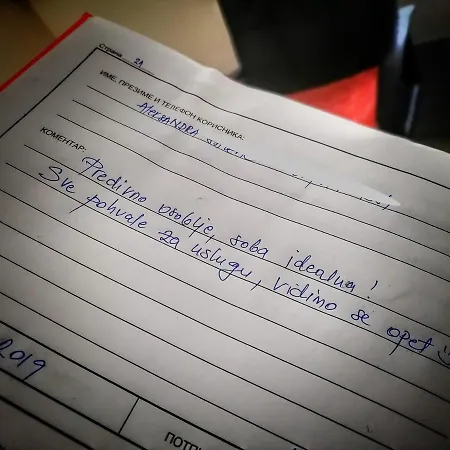 Страна 21
ИМЕ, ПРЕЗИМЕ И ТЕЛЕФОН КОРИСНИКА:
ALEKSANDRA
КОМЕНТАР:
Predivno osoblje, soba idealna!
Sve pohvale za uslugu, vidimo se opet :)
2019
ПОТП